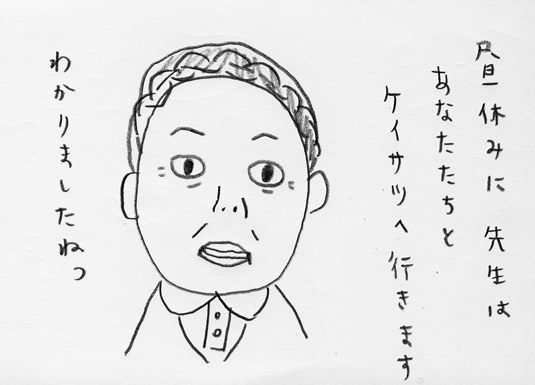 昼休みに 先生は
あなたたちと
ケイサツへ行きます
わかりましたねっ